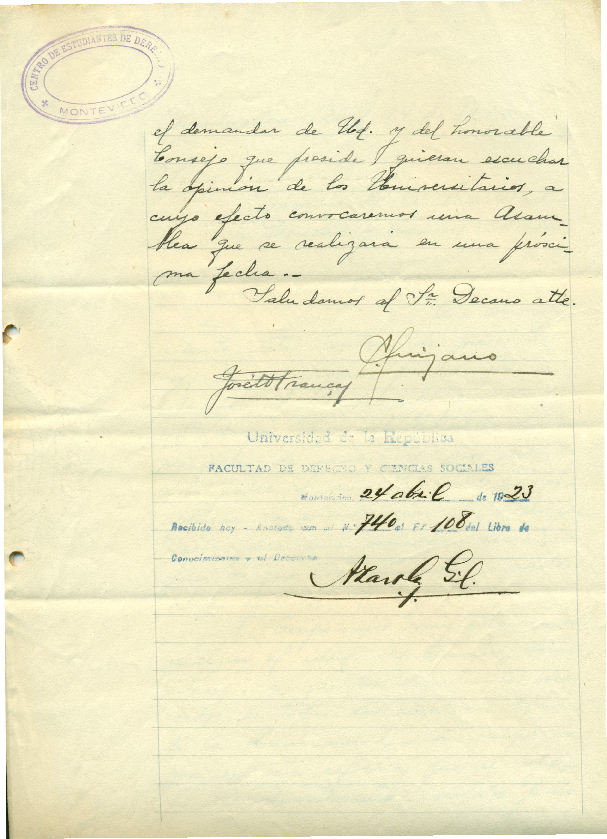 CENTRO DE ESTUDIANTES DE DERECHO
MONTEVIDEO
el demandar de Ud. y del honorable
Consejo que preside, quieran escuchar
la opinión de los Universitarios, a
cuyo efecto convocaremos una Asam-
blea que se realizará en una prósci-
ma fecha.-
Saludamos al Sr. Decano atte.
C. Quijano
Universidad de la República
FACULTAD DE DERECHO Y CIENCIAS SOCIALES
Montevideo, 24 abril de 1923
Recibido hoy - Anotado con el N.° 740 al F.° 108 del Libro de
Conocimientos y al Decanato
Azarola Gil